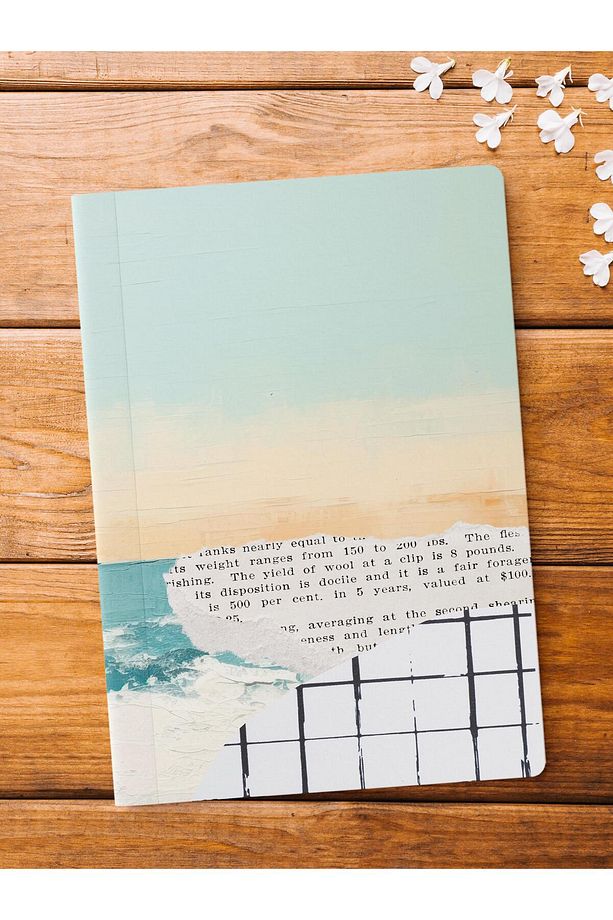 ranks nearly equal to
its weight ranges from 150 to 200 lbs. The fles
rishing. The yield of wool at a clip is 8 pounds.
its disposition is docile and it is a fair forager
is 500 per cent. in 5 years, valued at $100.
25.
ng, averaging at the second shearin
eness and lengt
th but